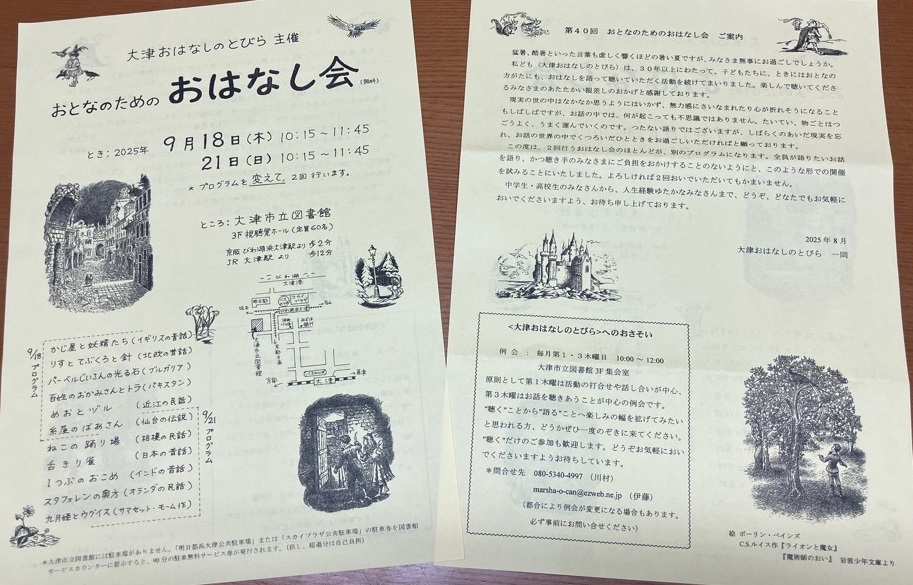 大津おはなしのとびら 主催
おとなのための おはなし会 (無料)
とき：2025年 9月18日(木) 10:15～11:45
21日(日) 10:15～11:45
* プログラムを変えて、2回行います。
ところ：大津市立図書館
3F 視聴覚ホール(定員60名)
京阪びわ湖浜大津駅より 歩2分
JR 大津駅 より 歩12分
びわ湖
大津港
大津市立図書館
京都
大津
9/18 プログラム
かじ屋と妖精たち (イギリスの昔話)
りすとてぶくろと針 (北欧の昔話)
パーベルじいさんの光る石 (ブルガリア)
百姓のおかみさんとトラ (パキスタン)
めおとヅル (近江の民話)
糸屋のばあさん (仙台の伝説)
9/21 プログラム
ねこの踊り場 (相模の民話)
舌きり雀 (日本の昔話)
1つぶのおこめ (インドの昔話)
スタフォレンの奥方 (オランダの民話)
九月姫とウグイス (サマセット・モーム作)
*大津市立図書館には駐車場がありません。「明日都浜大津公共駐車場」または「スカイプラザ公共駐車場」の駐車券を図書館
サービスカウンターに提示すると、90分の駐車無料サービス券が発行されます。(但し、超過分は自己負担)
第40回 おとなのためのおはなし会 ご案内
猛暑、酷暑といった言葉も虚しく響くほどの暑い夏ですが、みなさま無事にお過ごしでしょうか。
私ども〈大津おはなしのとびら〉は、30年以上にわたって、子どもたちに、ときにはおとなの
方がたにも、おはなしを語って聴いていただく活動を続けてまいりました。楽しんで聴いてくださ
るみなさまのあたたかい眼差しのおかげと感謝しております。
現実の世の中はなかなか思うようにはいかず、無力感にさいなまれたり心が折れそうになること
もしばしばですが、お話の中では、何が起こっても不思議ではありません。たいてい、物ごとはつ
ごうよく、うまく運んでいくのです。つたない語りではございますが、しばらくのあいだ現実を忘
れ、お話の世界の中でくつろいだひとときをお過ごしいただければと願っております。
この度は、2回行うおはなし会のほとんどが、別のプログラムになります。全員が語りたいお話
を語り、かつ聴き手のみなさまにご負担をおかけすることのないようにと、このような形での開催
を試みることにいたしました。よろしければ2回おいでいただいてもかまいません。
中学生・高校生のみなさんから、人生経験ゆたかなみなさんまで、どうぞ、どなたでもお気軽に
おいでくださいますよう、お待ち申し上げております。
2025年8月
大津おはなしのとびら 一同
<大津おはなしのとびら>へのおさそい
例 会 ： 毎月第1・3木曜日 10:00 ～ 12:00
大津市立図書館3F 集会室
原則として第1木曜は活動の打合せや話し合いが中心、
第3木曜はお話を聴きあうことが中心の例会です。
"聴く"ことから"語る"ことへ楽しみの幅を拡げてみたい
と思われる方、どうかぜひ一度のぞきに来てください。
"聴く"だけのご参加も歓迎します。どうぞお気軽におい
でくださいますようお待ちしています。
*問合せ先 080-5340-4997 (川村)
marsha-o-can@ezweb.ne.jp (伊藤)
(都合により例会が変更になる場合もあります。
必ず事前にお問合せください)
絵 ポーリン・ベインズ
C.S.ルイス作『ライオンと魔女』
『魔術師のおい』 岩波少年文庫より